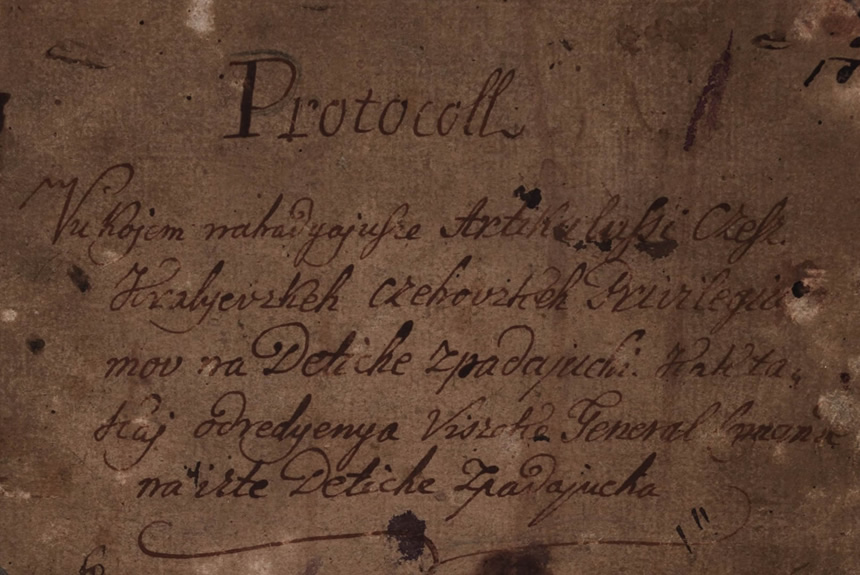 Protocoll
Vu kojem nahadyajusze Artikulussi Czesz.
Kralyevzkeh czehovzkeh Privilegiu
mov na Detiche zpadajuchi. Kak ta„
kaj odredyenya Viszoke General
na iste Detiche Zpadajucha